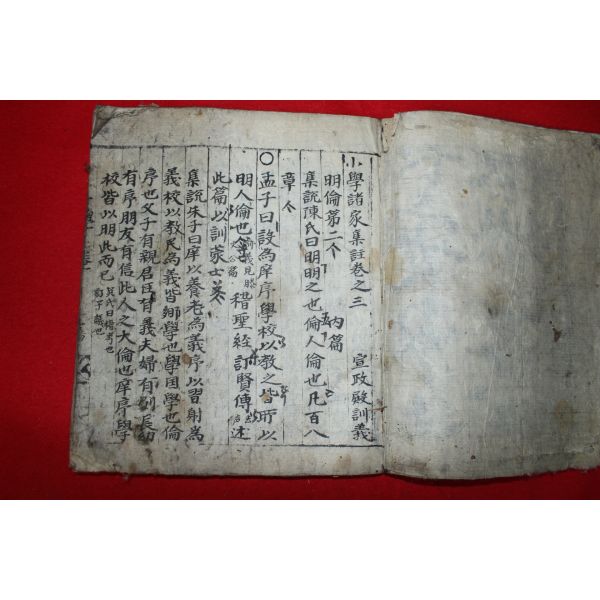 小學諸家集註卷之三 宣政殿訓義
明倫第二 內篇
集說陳氏曰明明之也倫人倫也凡百八
章
○孟子曰設為庠序學校以教之皆所以
明人倫也 義見滕文公篇 稽聖經訂賢傳 述
此篇以訓蒙士
集說朱子曰庠以養老為義序以習射為
義校以教民為義皆鄉學也學國學也倫
序也父子有親君臣有義夫婦有別長幼
有序朋友有信此人之大倫也庠序學
校皆以明此而已 吳氏曰稽考也